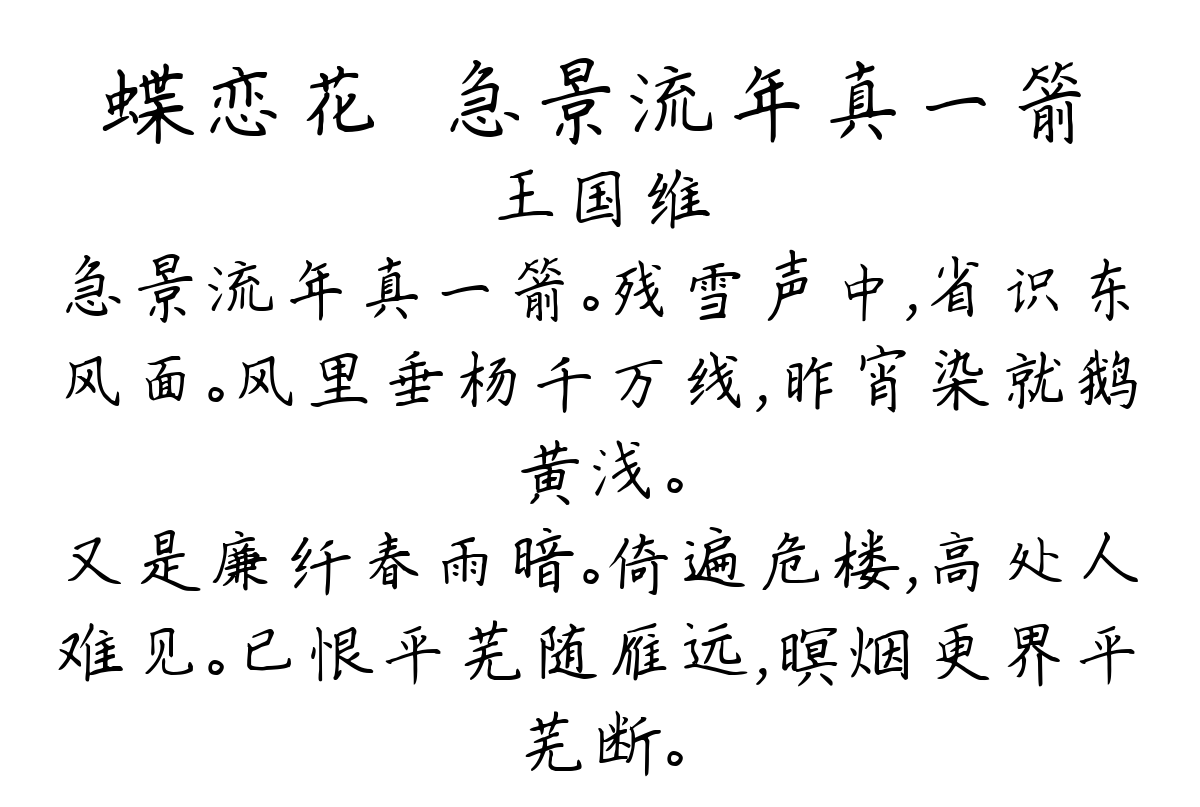 蝶恋花 急景流年真一箭
王国维
急景流年真一箭。残雪声中,省识东
风面。风里垂杨千万线,昨宵染就鹅
黄浅。
又是廉纤春雨暗。倚遍危楼,高处人
难见。已恨平芜随雁远,暝烟更界平
芜断。